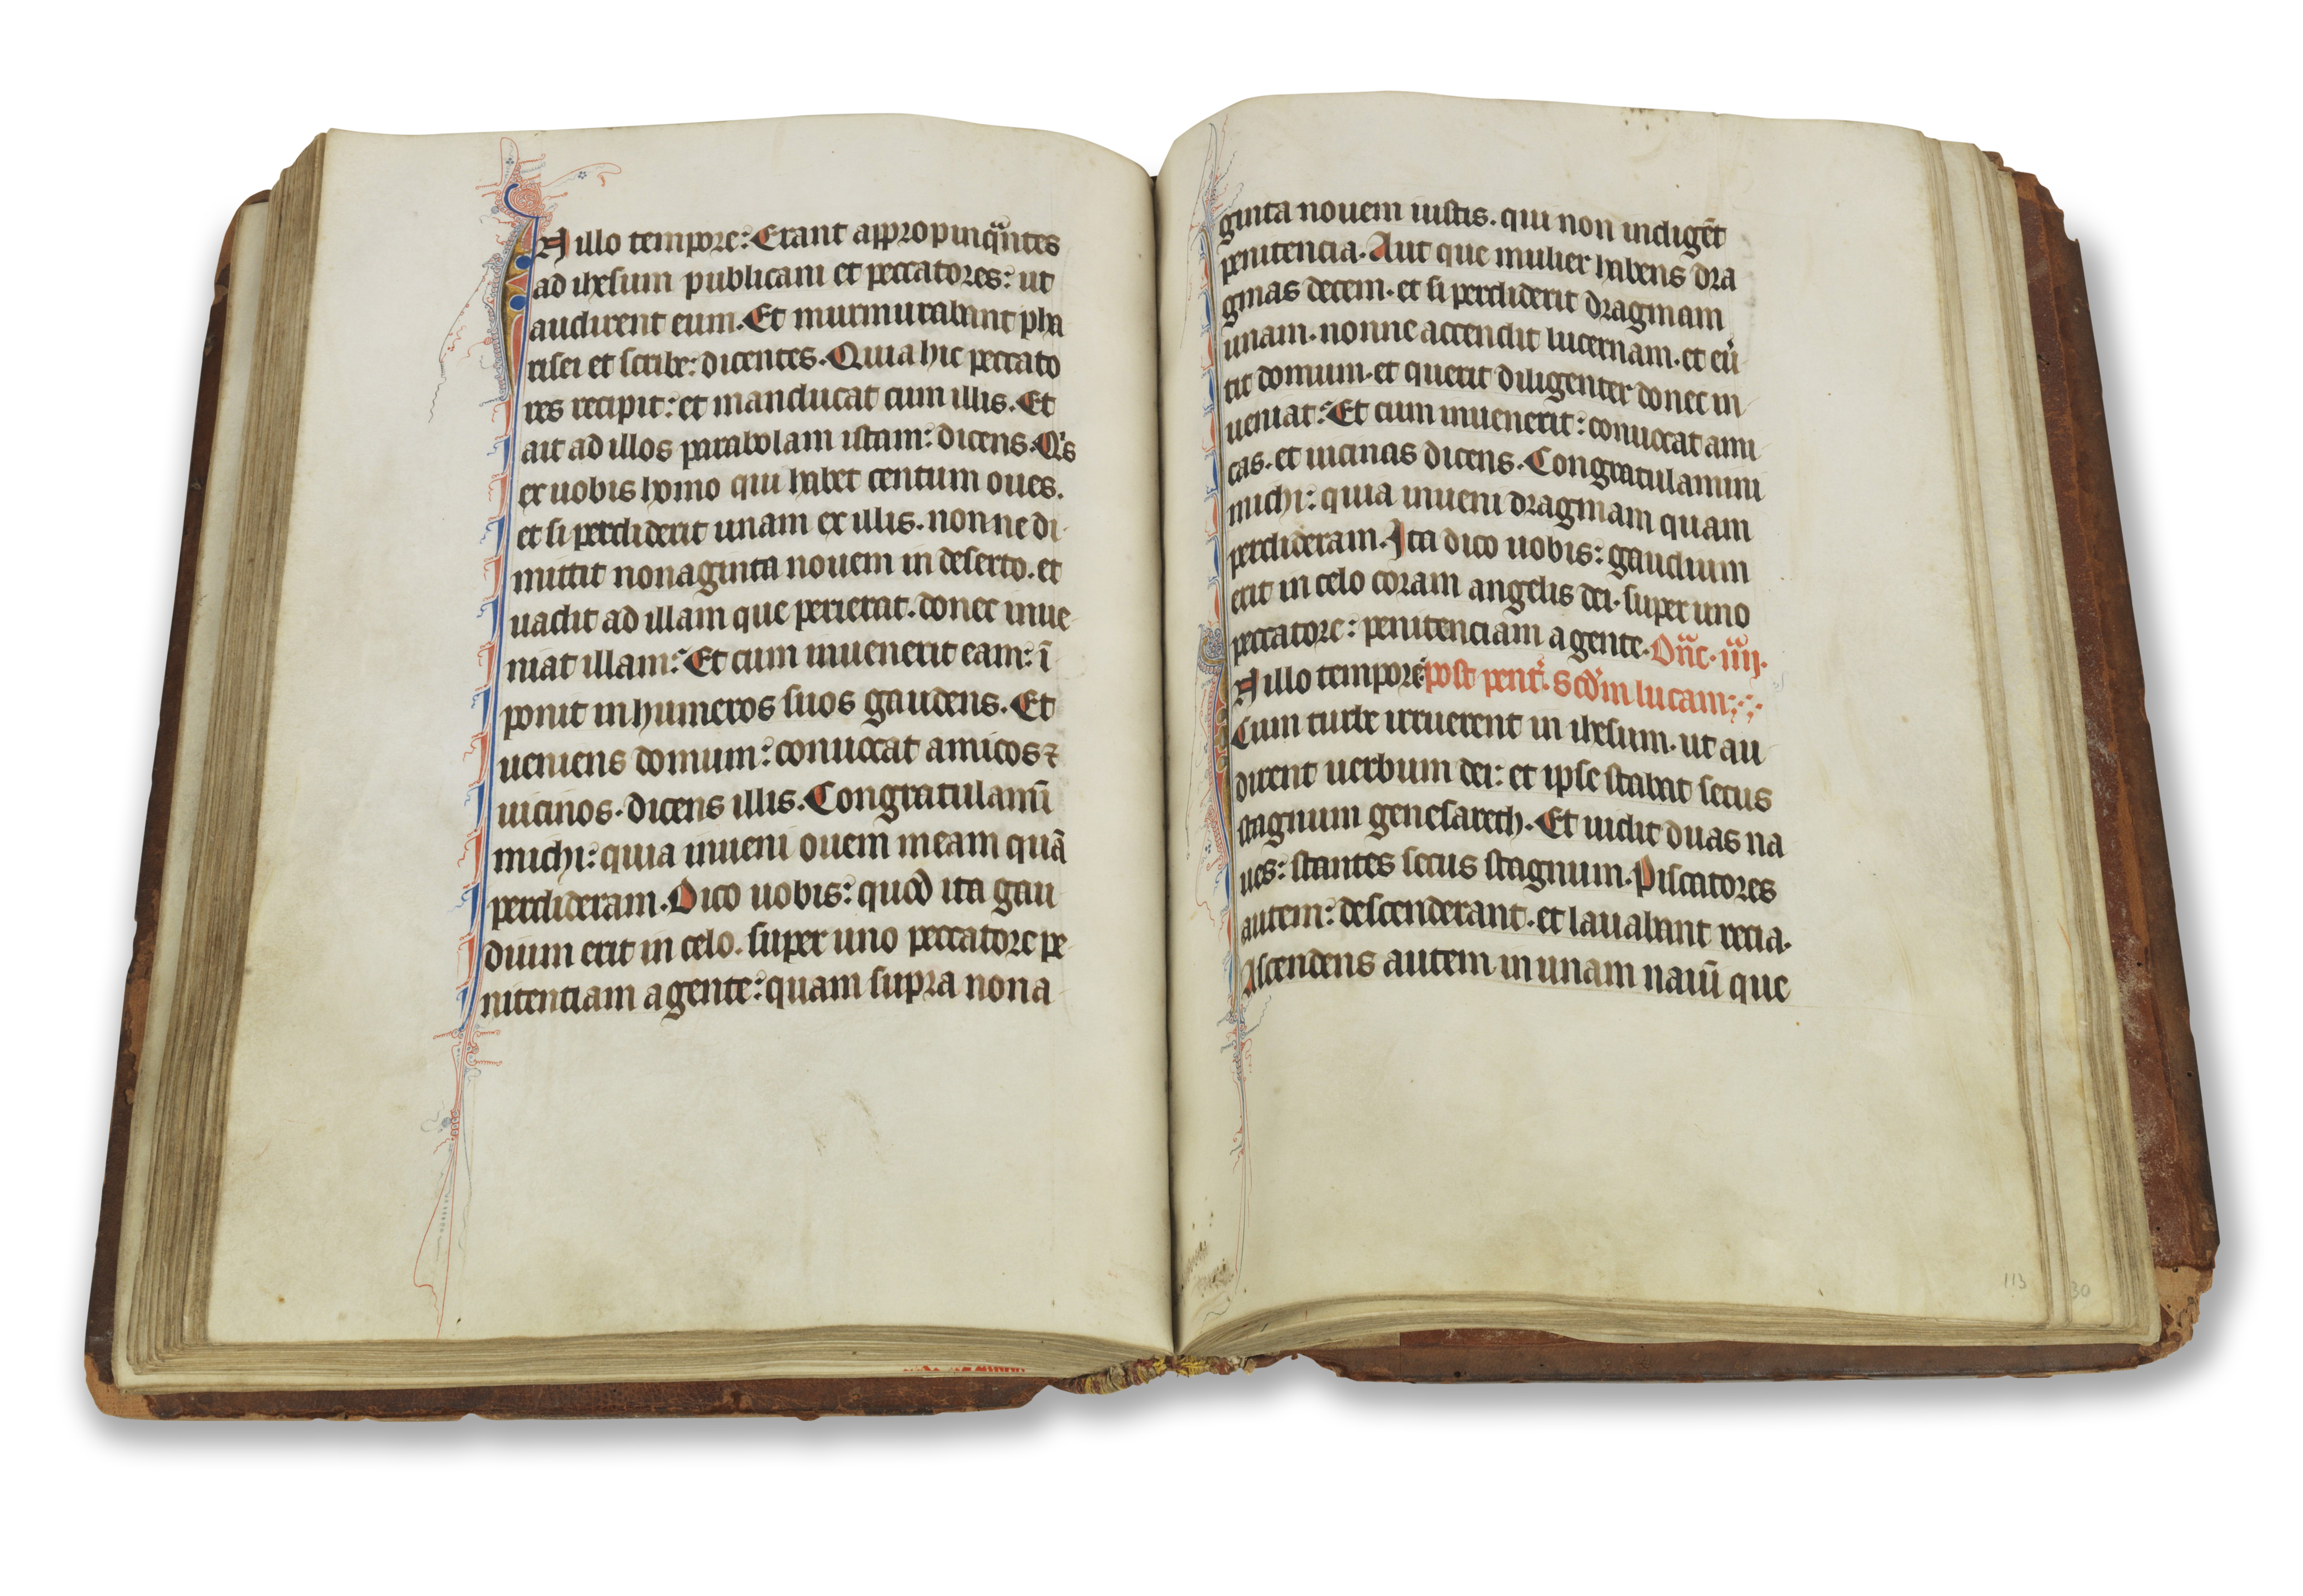 N illo tempore: Erant appropinqua̅ntes
ad ihesum publicani et peccatores: ut
audirent eum. Et murmurabant pha
risei et scribe: dicentes. Quia hic peccato
res recipit: et manducat cum illis. Et
ait ad illos parabolam istam: dicens. Qi̍s
ex uobis homo qui habet centum oues.
et si perdiderit unam ex illis. nonne di-
mittit nonaginta nouem in deserto. et
uadit ad illam que perierat. donec inue-
niat illam: Et cum inuenerit eam: i̅-
ponit in humeros suos gaudens. Et
ueniens domum: conuocat amicos ⁊
uicinos. dicens illis. Congratulami̅
michi: quia inueni ouem meam qua̅
perdideram. Dico uobis: quod ita gau-
dium erit in celo. super uno peccatore pe-
nitentiam agente: quam supra nona-
ginta nouem iustis. qui non indige̅t
penitencia. Aut que mulier habens dra
gmas decem. et si perdiderit dragmam
unam. nonne accendit lucernam. et eu̍-
tit domum. et querit diligenter donec in-
ueniat: Et cum inuenerit: conuocat ami-
cas. et uicinas dicens. Congratulamini
michi: quia inueni dragmam quam
perdideram. Ita dico uobis: gaudium
erit in celo coram angelis dei. super uno
peccatore: penitenciam agente. Dn̅c. iiij.
N illo tempore: post pent̍. scd̍m lucam:
Cum turbe irruerent in ihesum. ut au-
dirent uerbum dei: et ipse stabat secus
stagnum genesareth. Et uidit duas na
ues: stantes secus stagnum. Piscatores
autem: descenderant. et lauabant recia.
Ascendens autem in unam nauiu̅ que
113
30